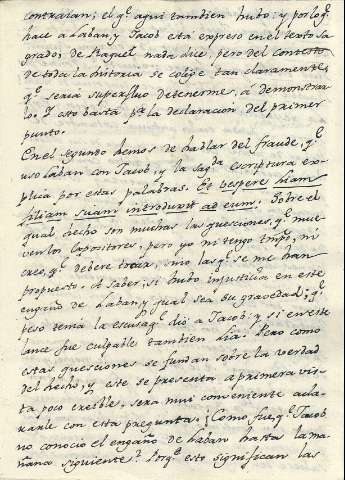 contraian; el qe aqui tambien hubo: y por lo qe
hace a Laban, y Jacob esta expreso en el texto Sa
grado; de Raquel nada dice, pero del contexto
de toda la historia se colige tan claramente,
qe seria superfluo detenerme, a demonstrar
lo. Y esto basta pa la declaracion del primer
punto.
En el segundo hemos de hablar del fraude, qe
usó Laban con Jacob, y la sagda escriptura ex-
plica por estas palabras. Et vespere Liam
filiam suam introduxit ad eum. Sobre el
qual hecho son muchas las questiones, qe mue
ven los Expositores, pero yo ni tengo tmpo, ni
creo, qe debere tocar, mio las qe se me han
propuesto. A saber, si hubo injusticia en este
engaño de Laban, y qual sea su gravedad; qe
peso tenia la escusa qe dió a Jacob; y si en este
lance fue culpable tambien Lia. Pero como
estas questiones se fundan sobre la verdad
del hecho, y este se presenta a primera vis-
ta poco creible, sera mui conveniente acla-
rarle con esta pregunta. ¿Como fue, qe Jacob
no conocio el engaño de Laban hasta la ma-
ñana siguiente? Porqe esto significan las